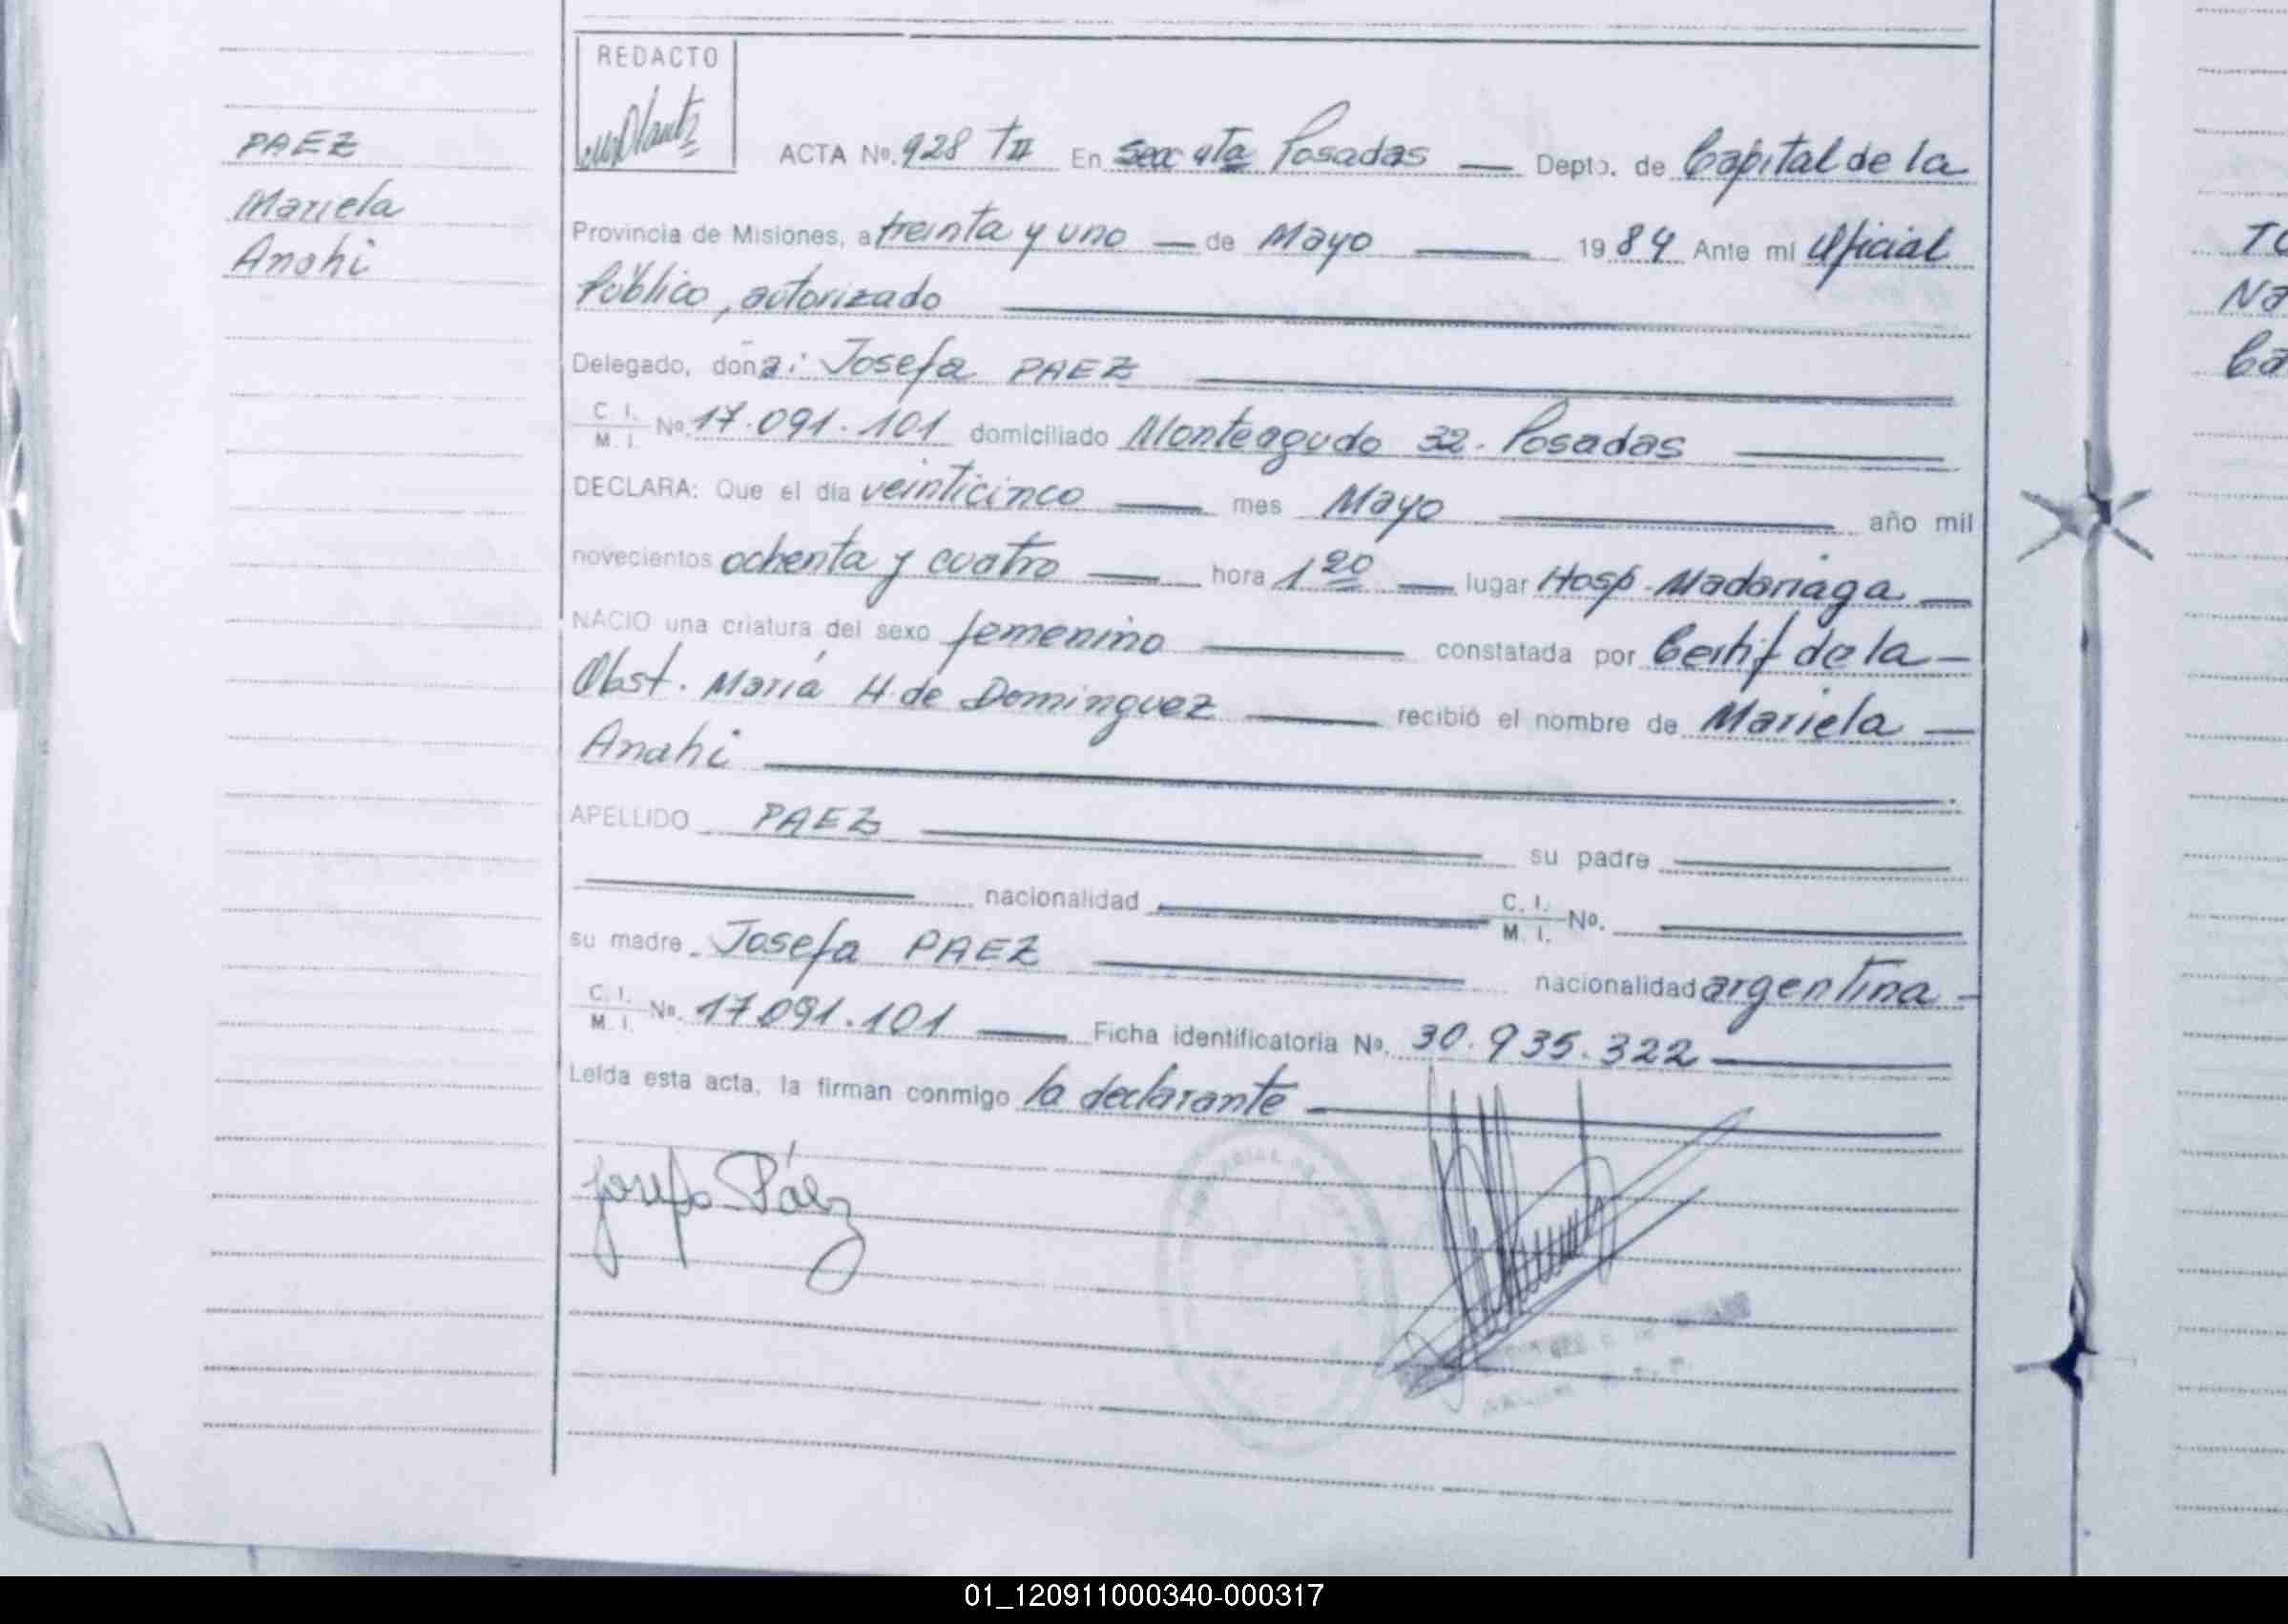 REDACTO
PAEZ
Mariela
Anahi
ACTA Nº. 928 TII En Secc 4ta Posadas — Depto. de Capital de la
Provincia de Misiones, a treinta y uno — de Mayo — 1984 Ante mí Oficial
Público, autorizado
Delegado, doña: Josefa PAEZ
C. I. / M. I. Nº. 17.091.101 domiciliado Monteagudo 32. Posadas
DECLARA: Que el día veinticinco — mes Mayo — año mil
novecientos ochenta y cuatro — hora 1 20 — lugar Hosp. Madariaga —
NACIO una criatura del sexo femenino — constatada por Certif de la —
Obst. María H. de Dominguez — recibió el nombre de Mariela —
Anahi
APELLIDO PAEZ — su padre —
— nacionalidad — C. I. / M. I. Nº. —
su madre Josefa PAEZ — nacionalidad argentina —
C. I. / M. I. Nº. 17.091.101 — Ficha identificatoria Nº. 30.935.322 —
Leída esta acta, la firman conmigo la declarante —
Josefa Páez
TO
Na
Ca
01_120911000340-000317